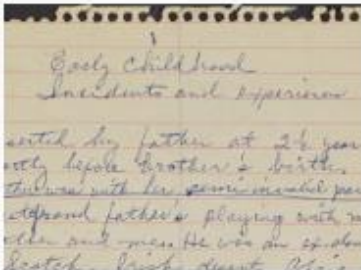 Early Childhood
Incidents and experiences
serted by father at 2½ year
ortly before brother's birth.
ther was with her semi invalid par
grand father's playing with m
and He was an
Scotch Irish descent